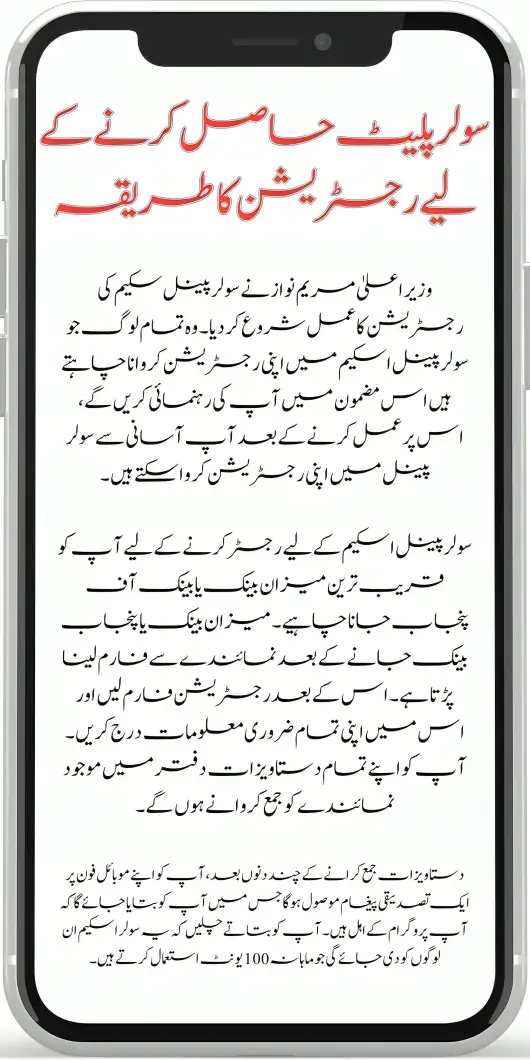 سولر پلیٹ حاصل کرنے کے
لیے رجسٹریشن کا طریقہ
وزیر اعلیٰ مریم نواز نے سولر پینل سکیم کی
رجسٹریشن کا عمل شروع کر دیا۔ وہ تمام لوگ جو
سولر پینل اسکیم میں اپنی رجسٹریشن کروانا چاہتے
ہیں اس مضمون میں آپ کی رہنمائی کریں گے،
اس پر عمل کرنے کے بعد آپ آسانی سے سولر
پینل میں اپنی رجسٹریشن کروا سکتے ہیں۔
سولر پینل اسکیم کے لیے رجسٹر کرنے کے لیے آپ کو
قریب ترین میزان بینک یا بینک آف
پنجاب جانا چاہیے۔ میزان بینک یا پنجاب
بینک جانے کے بعد نمائندے سے فارم لینا
پڑتا ہے۔ اس کے بعد رجسٹریشن فارم لیں اور
اس میں اپنی تمام ضروری معلومات درج کریں۔
آپ کو اپنے تمام دستاویزات دفتر میں موجود
نمائندے کو جمع کروانے ہوں گے۔
دستاویزات جمع کرانے کے چند دنوں بعد، آپ کو اپنے موبائل فون پر
ایک تصدیقی پیغام موصول ہو گا جس میں آپ کو بتایا جائے گا کہ
آپ پروگرام کے اہل ہیں۔ آپ کو بتاتے چلیں کہ یہ سولر اسکیم ان
لوگوں کو دی جائے گی جو ماہانہ 100 یونٹ استعمال کرتے ہیں۔